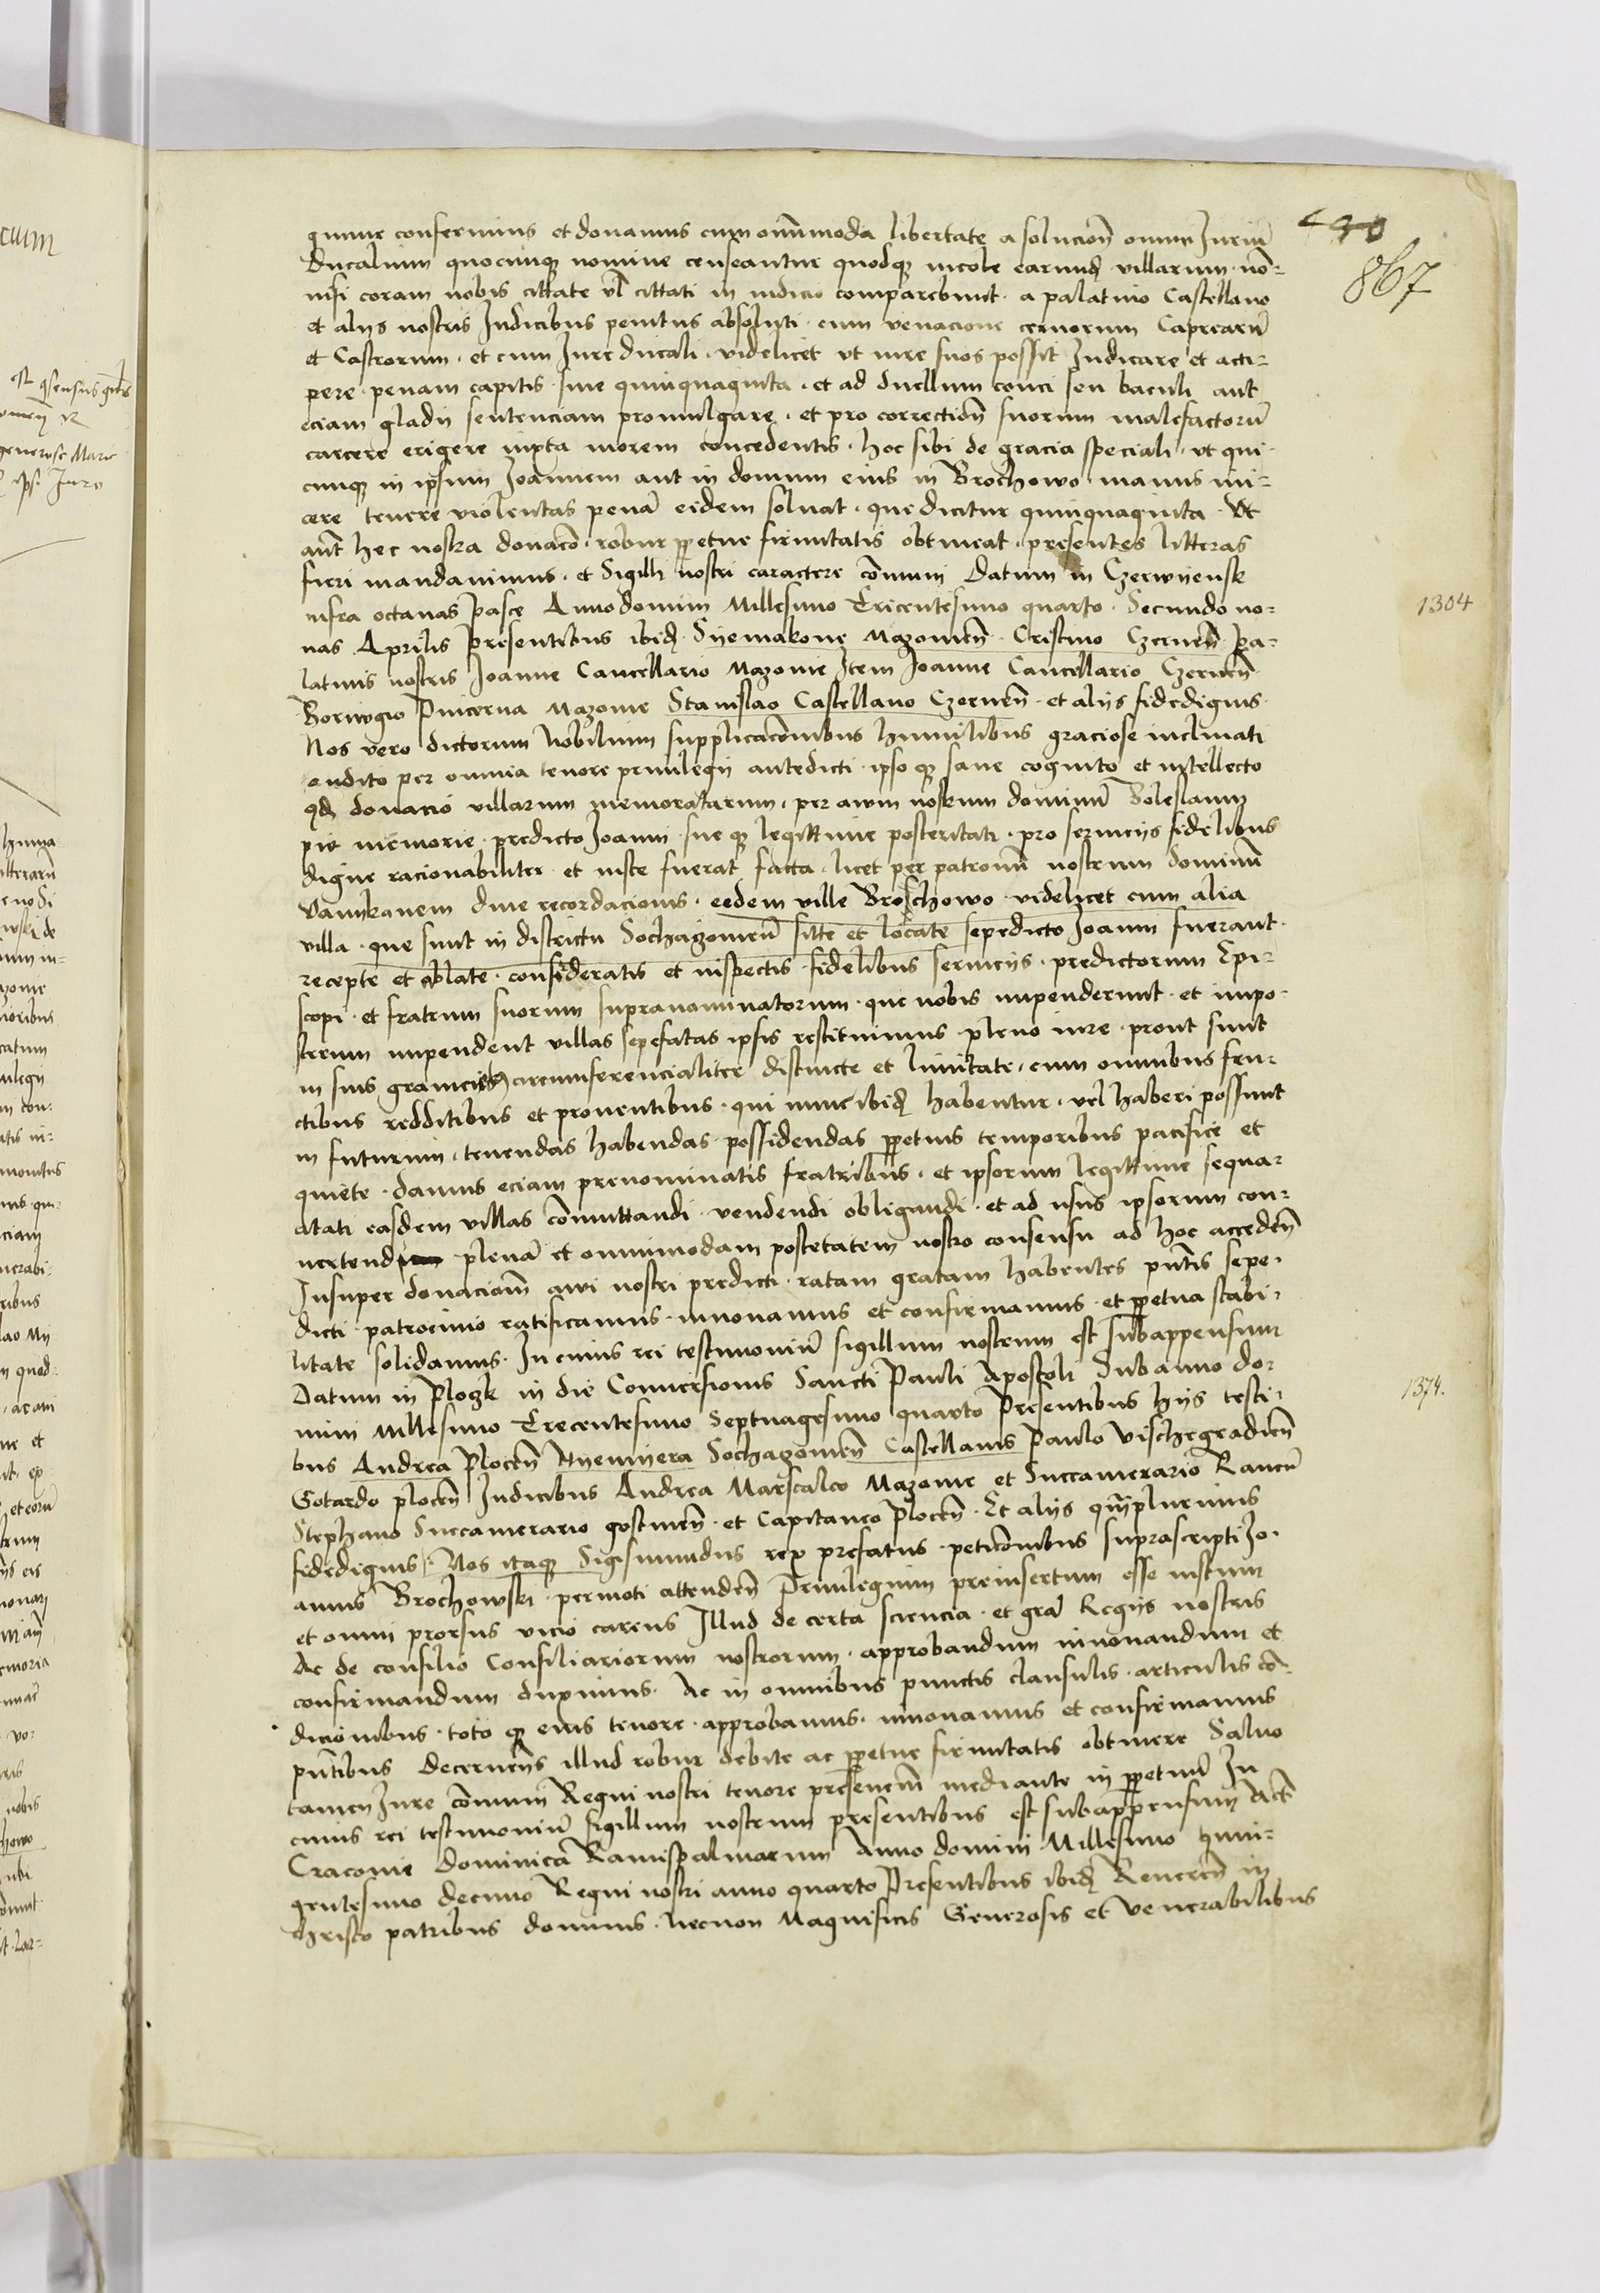 440
867
quime conferimus et donamus cum omnimoda libertate a solucioñ omniũ Iuriũ
Ducalium quocunqȝ nomine censeantur quodqȝ incole earund villarum no-
nisi coram nobis cittate vl cittati in iudicio comparebunt · a palatino Castellano
et alys nostris Iudicibus penitus absoluti · cum venacione ceruorum Caprearũ
et Castrorum · et cum Iure ducali · videlicet vt iure suos possit Iudicare et acci-
pere penam capitis · siue quinquaginta · et ad duellum couci seu baculi aut
eciam gladii sentenciam promulgare · et pro correctioñ suorum malefactorũ
carcere erigere iuxta morem concedentis · hoc sibi de gracia speciali · vt qui-
cunqȝ in ipsum Joannem aut in domum eius in Brochowo manus mi-
cere temere violentas penã eidem soluat · que dicitur quinquaginta · Vt
aũt hec nostra donacõ robur ppetue firmitatis obtineat · presentes litteras
fieri mandauimus · et Sigilli nostri caractere cõmuni Datum in Czerwyensk
infra octauas Pasce Anno domini Millesimo Tricentesimo quarto · Secundo no-
nas Aprilis Presentibus ibid Syemakone Mazouieñ · Cristino Czerneñ Pa-
latinis nostris Joanne Cancellario Mazouie Item Joanne Cancellario Czerneñ
Boriwogio Pincerna Mazouie Stanislao Castellano Czerneñ · et alijs fidedignis
Nos vero dictorum Nobilium supplicacõnibus humilibus graciose inclinati
audito per omnia tenore priuilegij antedicti · ipso qȝ sane cognito et intellecto
qd donacio villarum memoratarum · per awm nostrum dominũ Boleslaum
pie memorie · predicto Joanni · sue qȝ legittime posteritati · pro seruicijs fidelibus
digne racionabiliter et iuste fuerat facta · licet per patronũ nostrum dominũ
Vankanem diue recordacionis · eedem ville Broschowo videlicet cum alia
villa · que sunt in districtu Sochazouieñ sitte et locate sepedicto Joanni fuerant
recepte et ablate · consideratis et inspectis fidelibus seruicijs · predictorum Epi-
scopi · et fratrum suorum supranominatorum · que nobis impenderunt · et impo-
sterum impendent villas sepefatas ipsis restituimus pleno iure · prout sunt
in suis granicijs circumferencialiter distincte et limitate · cum omnibus fru-
ctibus redditibus et prouentibus · qui nunc ibid habentur · vel haberi possunt
in futurum · tenendas habendas possidendas ppetuis temporibus pacifice et
quiete · damus eciam prenominatis fratribus · et ipsorum legittime sequa-
citati easdem villas cõmuttandi · vendendi obligandi · et ad usus ipsorum con-
uertend plenã et omnimodam postetatem nostro consensu ad hoc accedeñ
Insuper donacionẽ awi nostri predicti · ratam gratam habentes pñtis sepe-
dicti patrocinio ratificamus · innouamus et confirmamus · et ppetua stabi-
litate solidamus · In cuius rei testimoniũ sigillum nostrum est subappensum
Datum in Ploczk in die Conuersionis Sancti Pauli Apostoli Sub anno do-
mini Millesimo Trecentesimo Septuagesimo quarto Presentibus hijs testi-
bus Andrea Ploceñ Nyemyera Sochazouieñ Castellanis Paulo Vischegradieñ
Gotardo ploceñ Iudicibus Andrea Marscalco Mazouie et Succamerario Raueñ
Stephano Succamerario gostineñ · et Capitaneo Ploceñ · Et alijs quãpluribus
fidedignis · Nos itaqȝ Sigismundus rex prefatus · peticõnibus suprascripti Jo-
annis Brochowski · permoti attendeñ Priuilegium preinsertum esse iustum
et omni prorsus vicio carens Illud de certa sciencia · et grã Regijs nostris
Ac de consilio Consiliariorum nostrorum · approbandum innouandum et
confirmandum duximus · Ac in omnibus punctis clausulis · articulis cõ-
dicionibus · toto qȝ eius tenore · approbamus · innouamus et confirmamus
pñtibus decerneñs illud robur debite ac ppetue firmitatis obtinere Saluo
tamen Iure cõmuni Regni nostri tenore presencm mediante in ppetuũ In
cuius rei testimoniũ sigillum nostrum presentibus est subappensum Actũ
Cracouie Dominica Ramispalmarum Anno domini Millesimo Quin-
gentesimo decimo Regni nostri anno quarto Presentibus ibid Reuereñ in
christo patribus dominis · Necnon Magnificis Generosis et Venerabilibus
1304
1374.